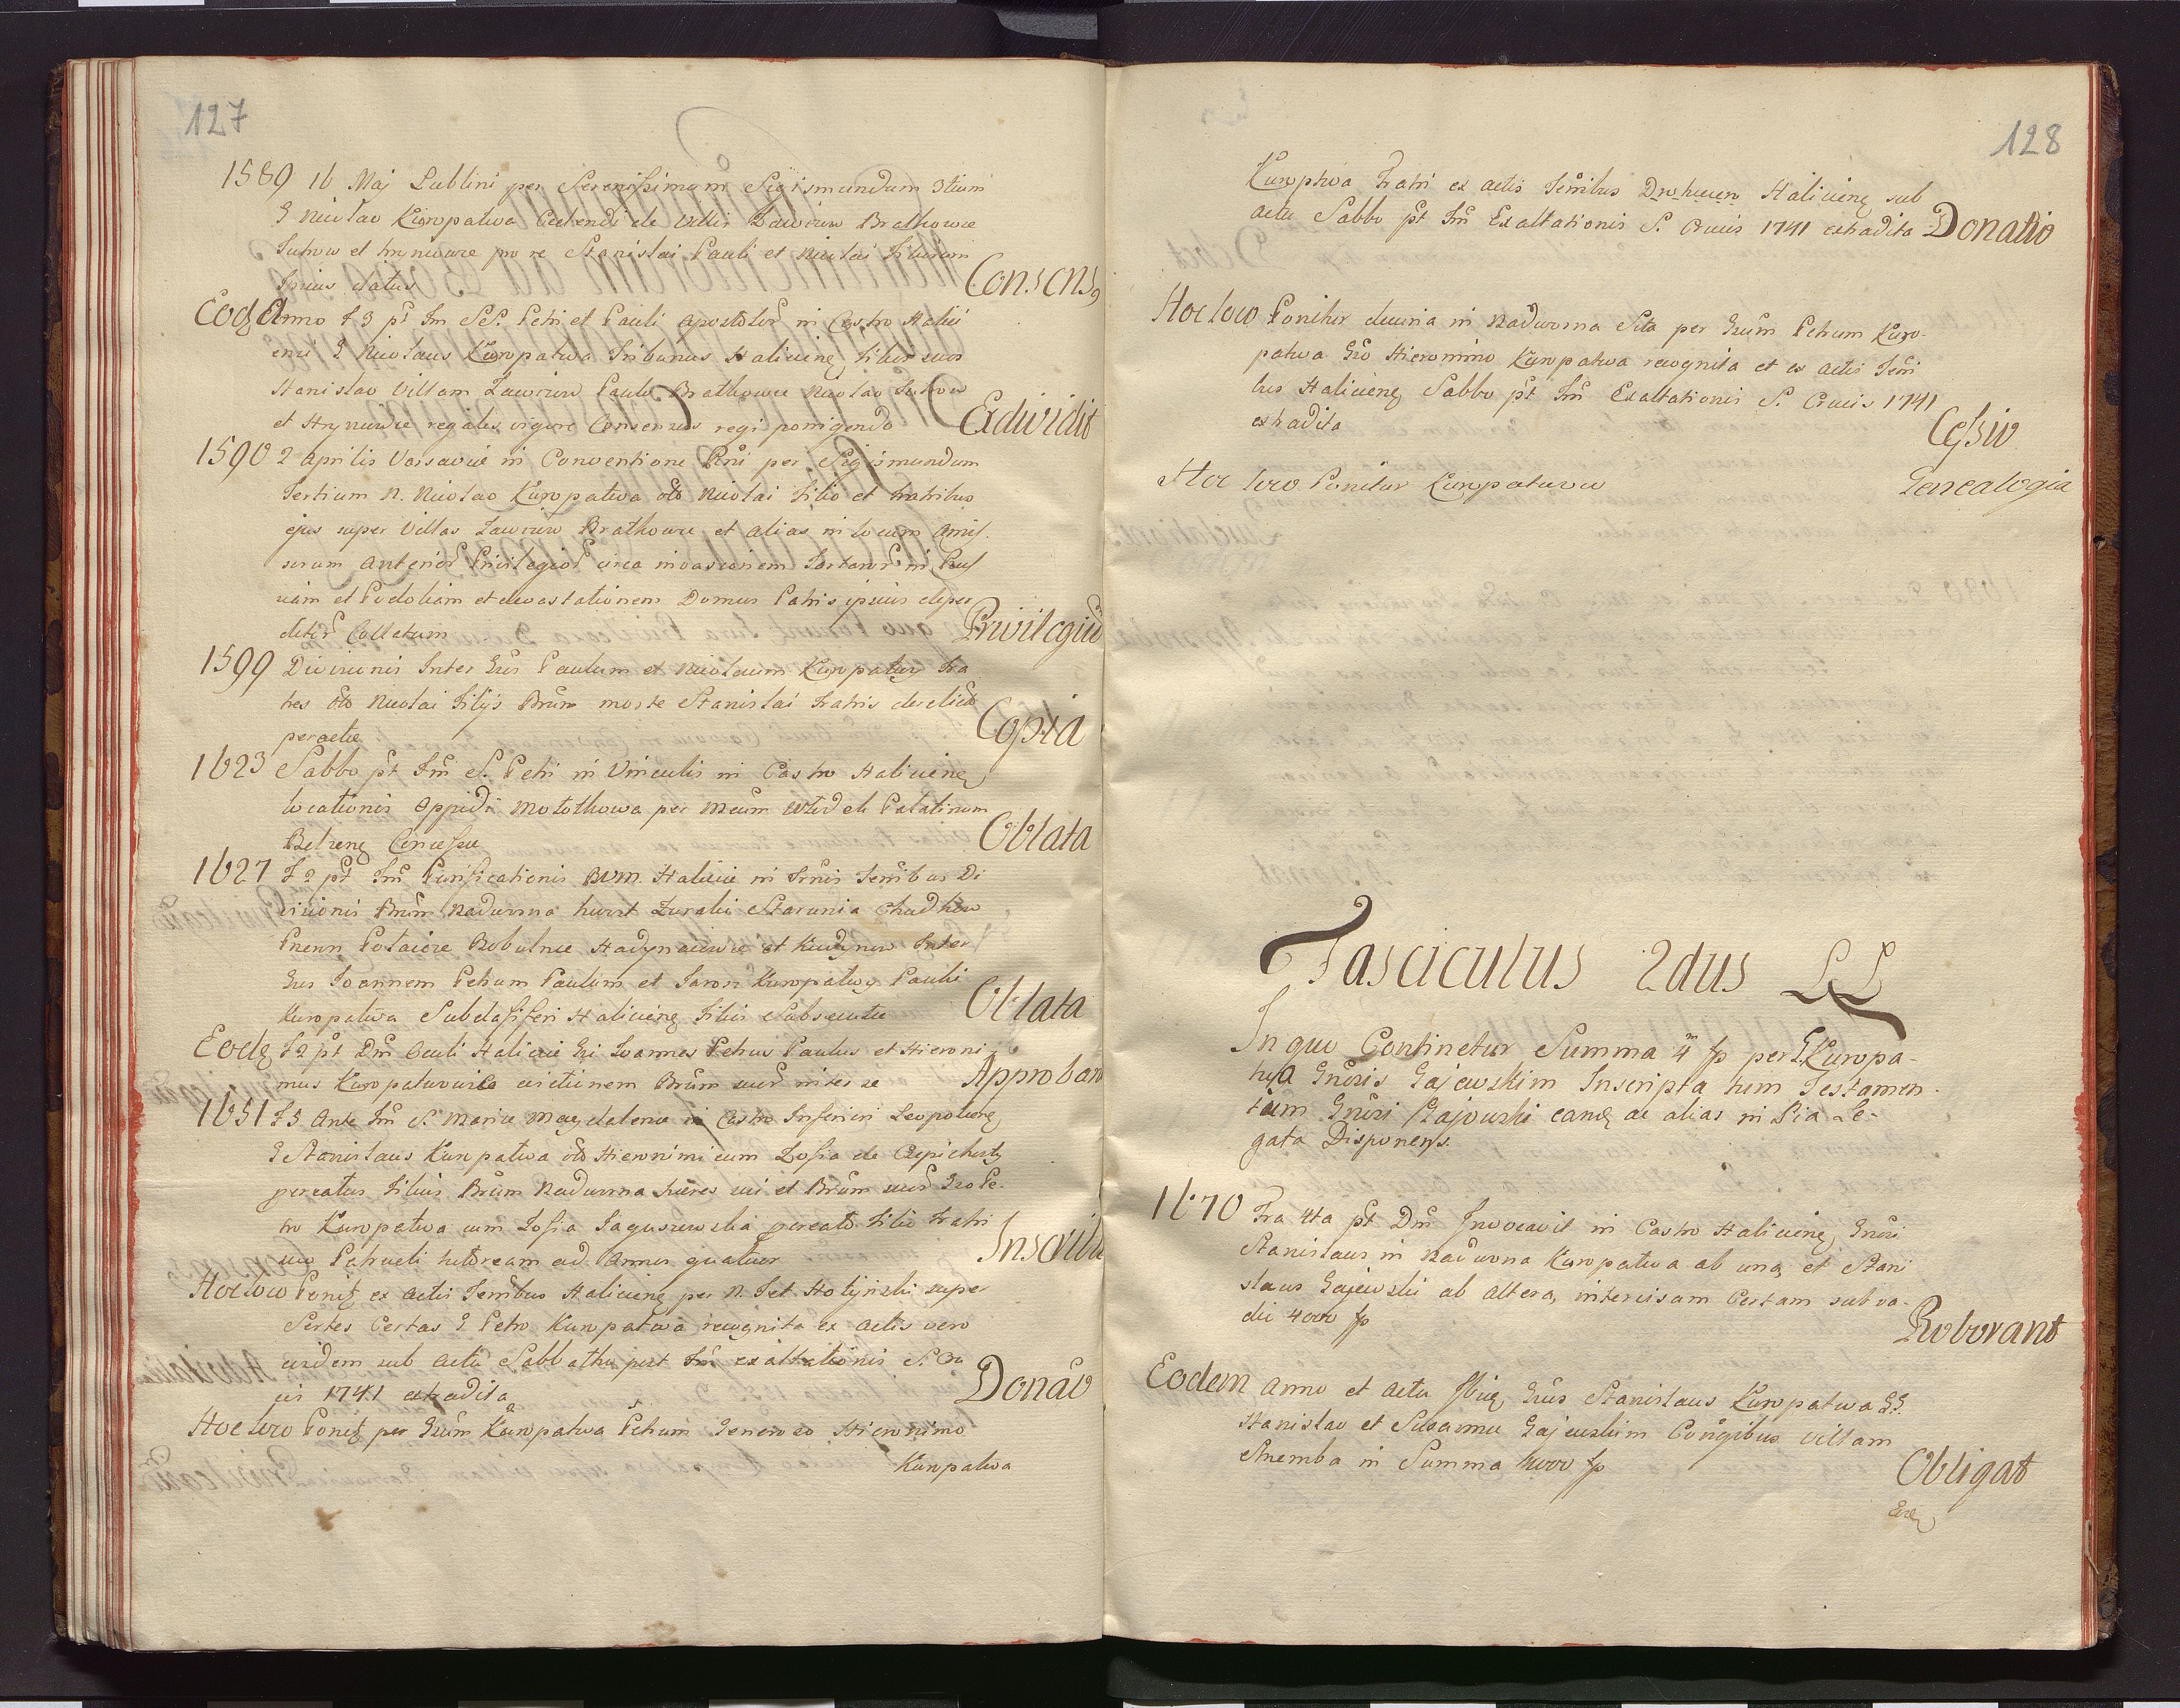 127
1589 16 Maj Lublini per Serenissimum Sigismundum 3tium
G Nicolao Kuropatwa Cedendi de Villis Zawirow Bratkowce
Tustow et Hryniowce pro re Stanislai Pauli et Nicolai Filiorum
Ipsius datus Consensq
Eodg Anno F 3 pt Fm SS. Petri et Pauli Apostolor in Castro Halici
ensi G Nicolaus Kuropatwa Tribunus Halicieng filior suor
Stanislao Villam Zawirow Paulo Bratkowce Nicolao Tustow
et Hryniowce regales vigore Consensus regi porrigendo Exdividit
1590 2 Aprilis Varsaviæ in Conventione Rni per Sigismundum
Tertium N. Nicolao Kuropatwa olo Nicolai Filio et fratribus
ejus super Villas Zawirow Bratkowce et alias in locum amis
sorum anterior Privilegior circa invasionem Tartaror in Rus
siam et Podoliam et devastationem Domus Patris ipsius deper
ditor Collatum Privilegiu
1599 Divisionis Inter Gros Paulum et Nicolaum Kuropatwy Fra
tres olo Nicolai Filijs Bnrm morte Stanislai Fratris derelict
peractæ Copia
1623 Sabbo pt Fm S. Petri in Vinculis in Castro Halicieng
locationis Oppidi Motothowa per Palatinum
Belzeng Concessæ Oblata
1627 F 2 pt Fm Purificationis BVM. Haliciæ in Trnis Terribus Di
visionis Bnrm Nadworna hwozt Zuraki Starunia Chudkow
Pniewn Potaicze Bobulnce Hadynkowce et Kudynow Inter
Gros Joannem Petrum Paulum et Jaron Kuropatwy Pauli
Kuropatwa Subdapiferi Halicieng Filios Subsecutæ Oblata
Eodg F 2 pt Dm Oculi Haliciæ Gri Joannes Petrus Paulus et Hieroni
mus Kuropatwowie divisionem Bnrm suor inter se Approbant
1651 F 5 Ante Fm S. Mariæ Magdalenæ in Castro Inferiori Leopolieng
G Stanislaus Kuropatwa olo Hieronimi cum Zofia de Czepichosty
pereatus Filius Bnrm Nadworna hæres sui et Bnrm suor Gro Pe
tro Kuropatwa cum Zofia Jaguszewska pereato Filio Fratri
suo Patrueli tutoream ad annos quatuor Inscribit
Hoc loco Ponitg ex actis Terribus Halicieng per N. Fet Hotynski super
Sortes Certas G Petro Kuropatwa recognita ex actis vero
eisdem sub actu Sabbatho post Fm exaltationis S. Cru
cis 1741 extradita Donao
Hoc loco Ponitg per Grum Kuropatwa Petrum Generoso Hieronimo
Kuropatwa
128
Kuroptwa Fratri ex actis Terribus Drohicen Halicieng sub
actu Sabbo pt Fm Exaltationis S. Crucis 1741 extradita Donatio
Hoc loco Ponitur decuria in Nadworna Sita per Grum Petrum Kuro-
patwa Gro Hieronimo Kuropatwa recognita et ex actis Terri
bus Halicieng Sabbo pt Fm Exaltationis S. Crucis 1741
extradita Cessio
Hoc loco Ponitur Kuropatwow Genealogia
Fasciculus 2dus LL
In quo Continetur Summa 4m fp per G Kuropa-
twa Gnrsis Gajewskim Inscripta tum Testamen-
tum Gnrsi Gajowski eamg ac alias in Pia Le-
gata Disponens.
1670 Fra 4ta pt Dm Invocavit in Castro Halicieng Gnrsi
Stanislaus in Nadworna Kuropatwa ab unag et Stani
slaus Gajewski ab altera, intercisam Certam sub va-
dii 4000 fp Roborant
Eodem Anno et Actu Grus Stanislaus Kuropatwa GG.
Stanislao et Susannæ Gajewskim Congibus villam
Strzemba in Summa 4000 fp Obligat
Eodg